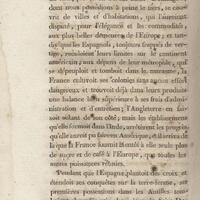 dont nous possédions à peine le tiers, se couvrit
de villes et d'habitations, qui l'auroient
disputé, pour l'élégance et les commodités,
aux plus belles demeures de l'Europe; et tandis
que les Espagnols, toujours trompés de
voyage, reculoient leurs limites sur le continent
américain, aux dépens de leur métropole, qui
se dépeuploit et tomboit dans la langueur, la
France cultivoit ses colonies sans aucun effort
dangereux et trouvoit déjà dans leurs produits
une balance bien supérieure à ses frais d'administration
et d'entretien; l'Angleterre en faisoit
autant de son côté; mais les établissemens
qu'elle formoit dans l'Inde, arrêtèrent les progrès
qu'elle auroit pu faire en Amérique, et il arriva de
là que la France fournit bientôt à elle seule plus
de sucre et de café à l'Europe, que toutes les
autres puissances réunies.
Pendant que l'Espagne plantoit des croix et
étendoit ses conquêtes sur la terre-ferme, ses
premières possessions dans les Antilles